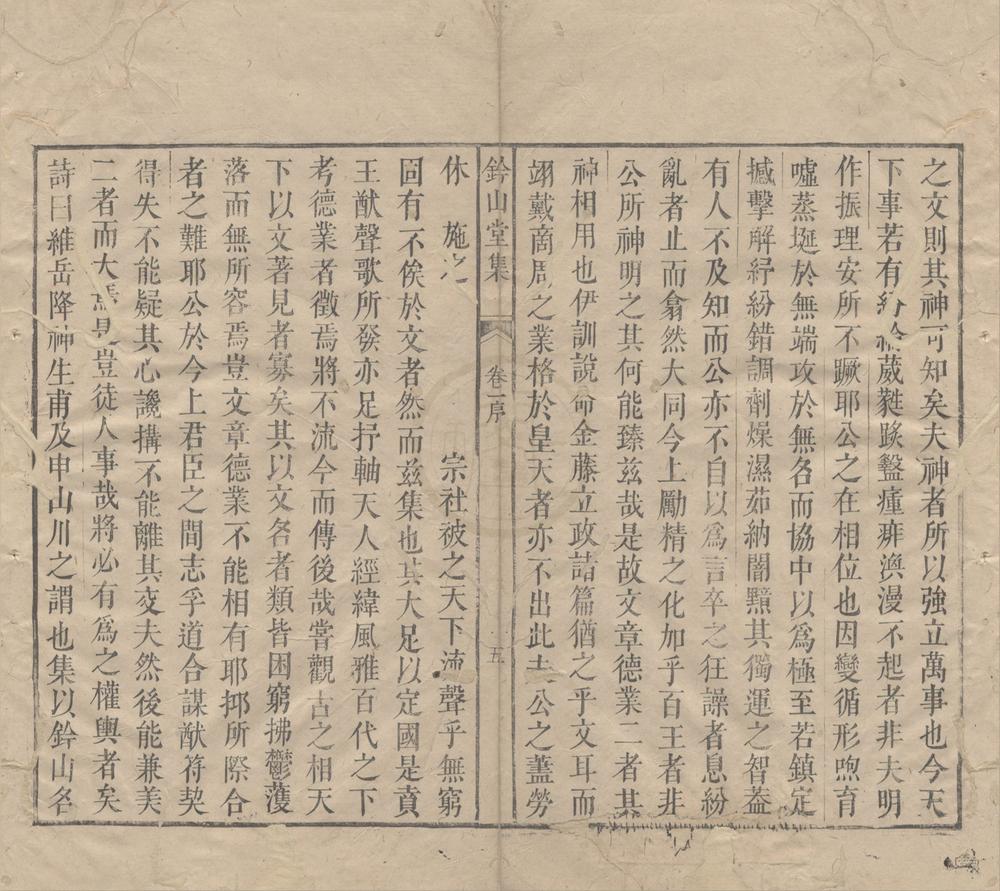 之文則其神可知矣夫神者所以強立萬事也今天
下事若有紛綸葳蕤䠱盭瘇痱渙漫不起者非夫明
作振理安所不蹶耶公之在相位也因變循形喣育
噓蒸埏於無端攻於無名而協中以爲極至若鎮定
撼擊解紓紛錯調劑燥濕茹納闇黮其獨運之智葢
有人不及知而公亦不自以爲言卒之狂譟者息紛
亂者止而翕然大同今上勵精之化加乎百王者非
公所神明之其何能臻玆哉是故文章德業二者其
神相用也伊訓說命金藤立政誥篇猶之乎文耳而
翊戴商周之業格於皇天者亦不出此夫公之藎勞
鈐山堂集 卷一序 五
休 施之 宗社被之天下流聲乎無窮
固有不俟於文者然而茲集也其大足以定國是賁
王猷聲歌所發亦足抒軸天人經緯風雅百代之下
考德業者徵焉將不流今而傳後哉嘗觀古之相天
下以文著見者寡矣其以文名者類皆困窮拂鬱濩
落而無所容焉豈文章德業不能相有耶抑所際合
者之難耶公於今上君臣之間志孚道合謀猷符契
得失不能疑其心讒搆不能離其交夫然後能兼美
二者而大焉是豈徒人事哉將必有爲之權輿者矣
詩曰維岳降神生甫及申山川之謂也集以鈐山名